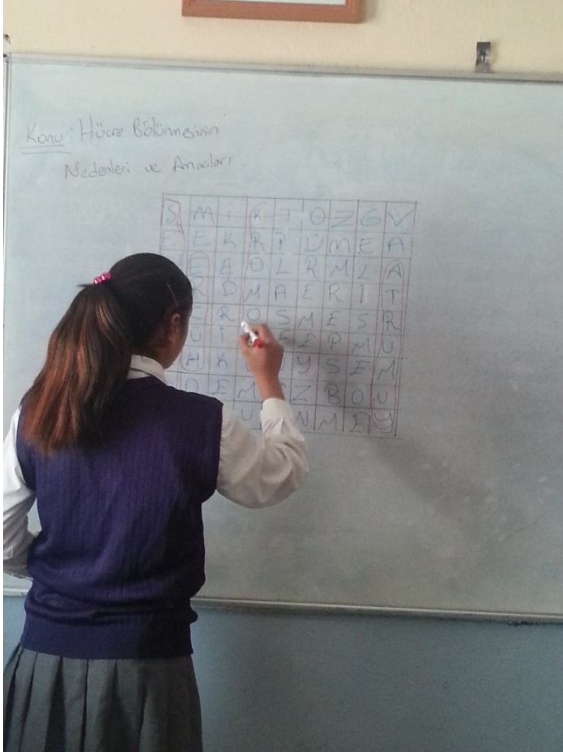 Konu: Hücre Bölünmesinin
Nedenleri ve Amaçları
S M İ K T O Z G V
E E K R P Ü M E A
E B O L R M L A
K D M A E R İ T
R O S M E S R
İ E P M U
H K Y S E M
O E M Z B O U
U N M Y